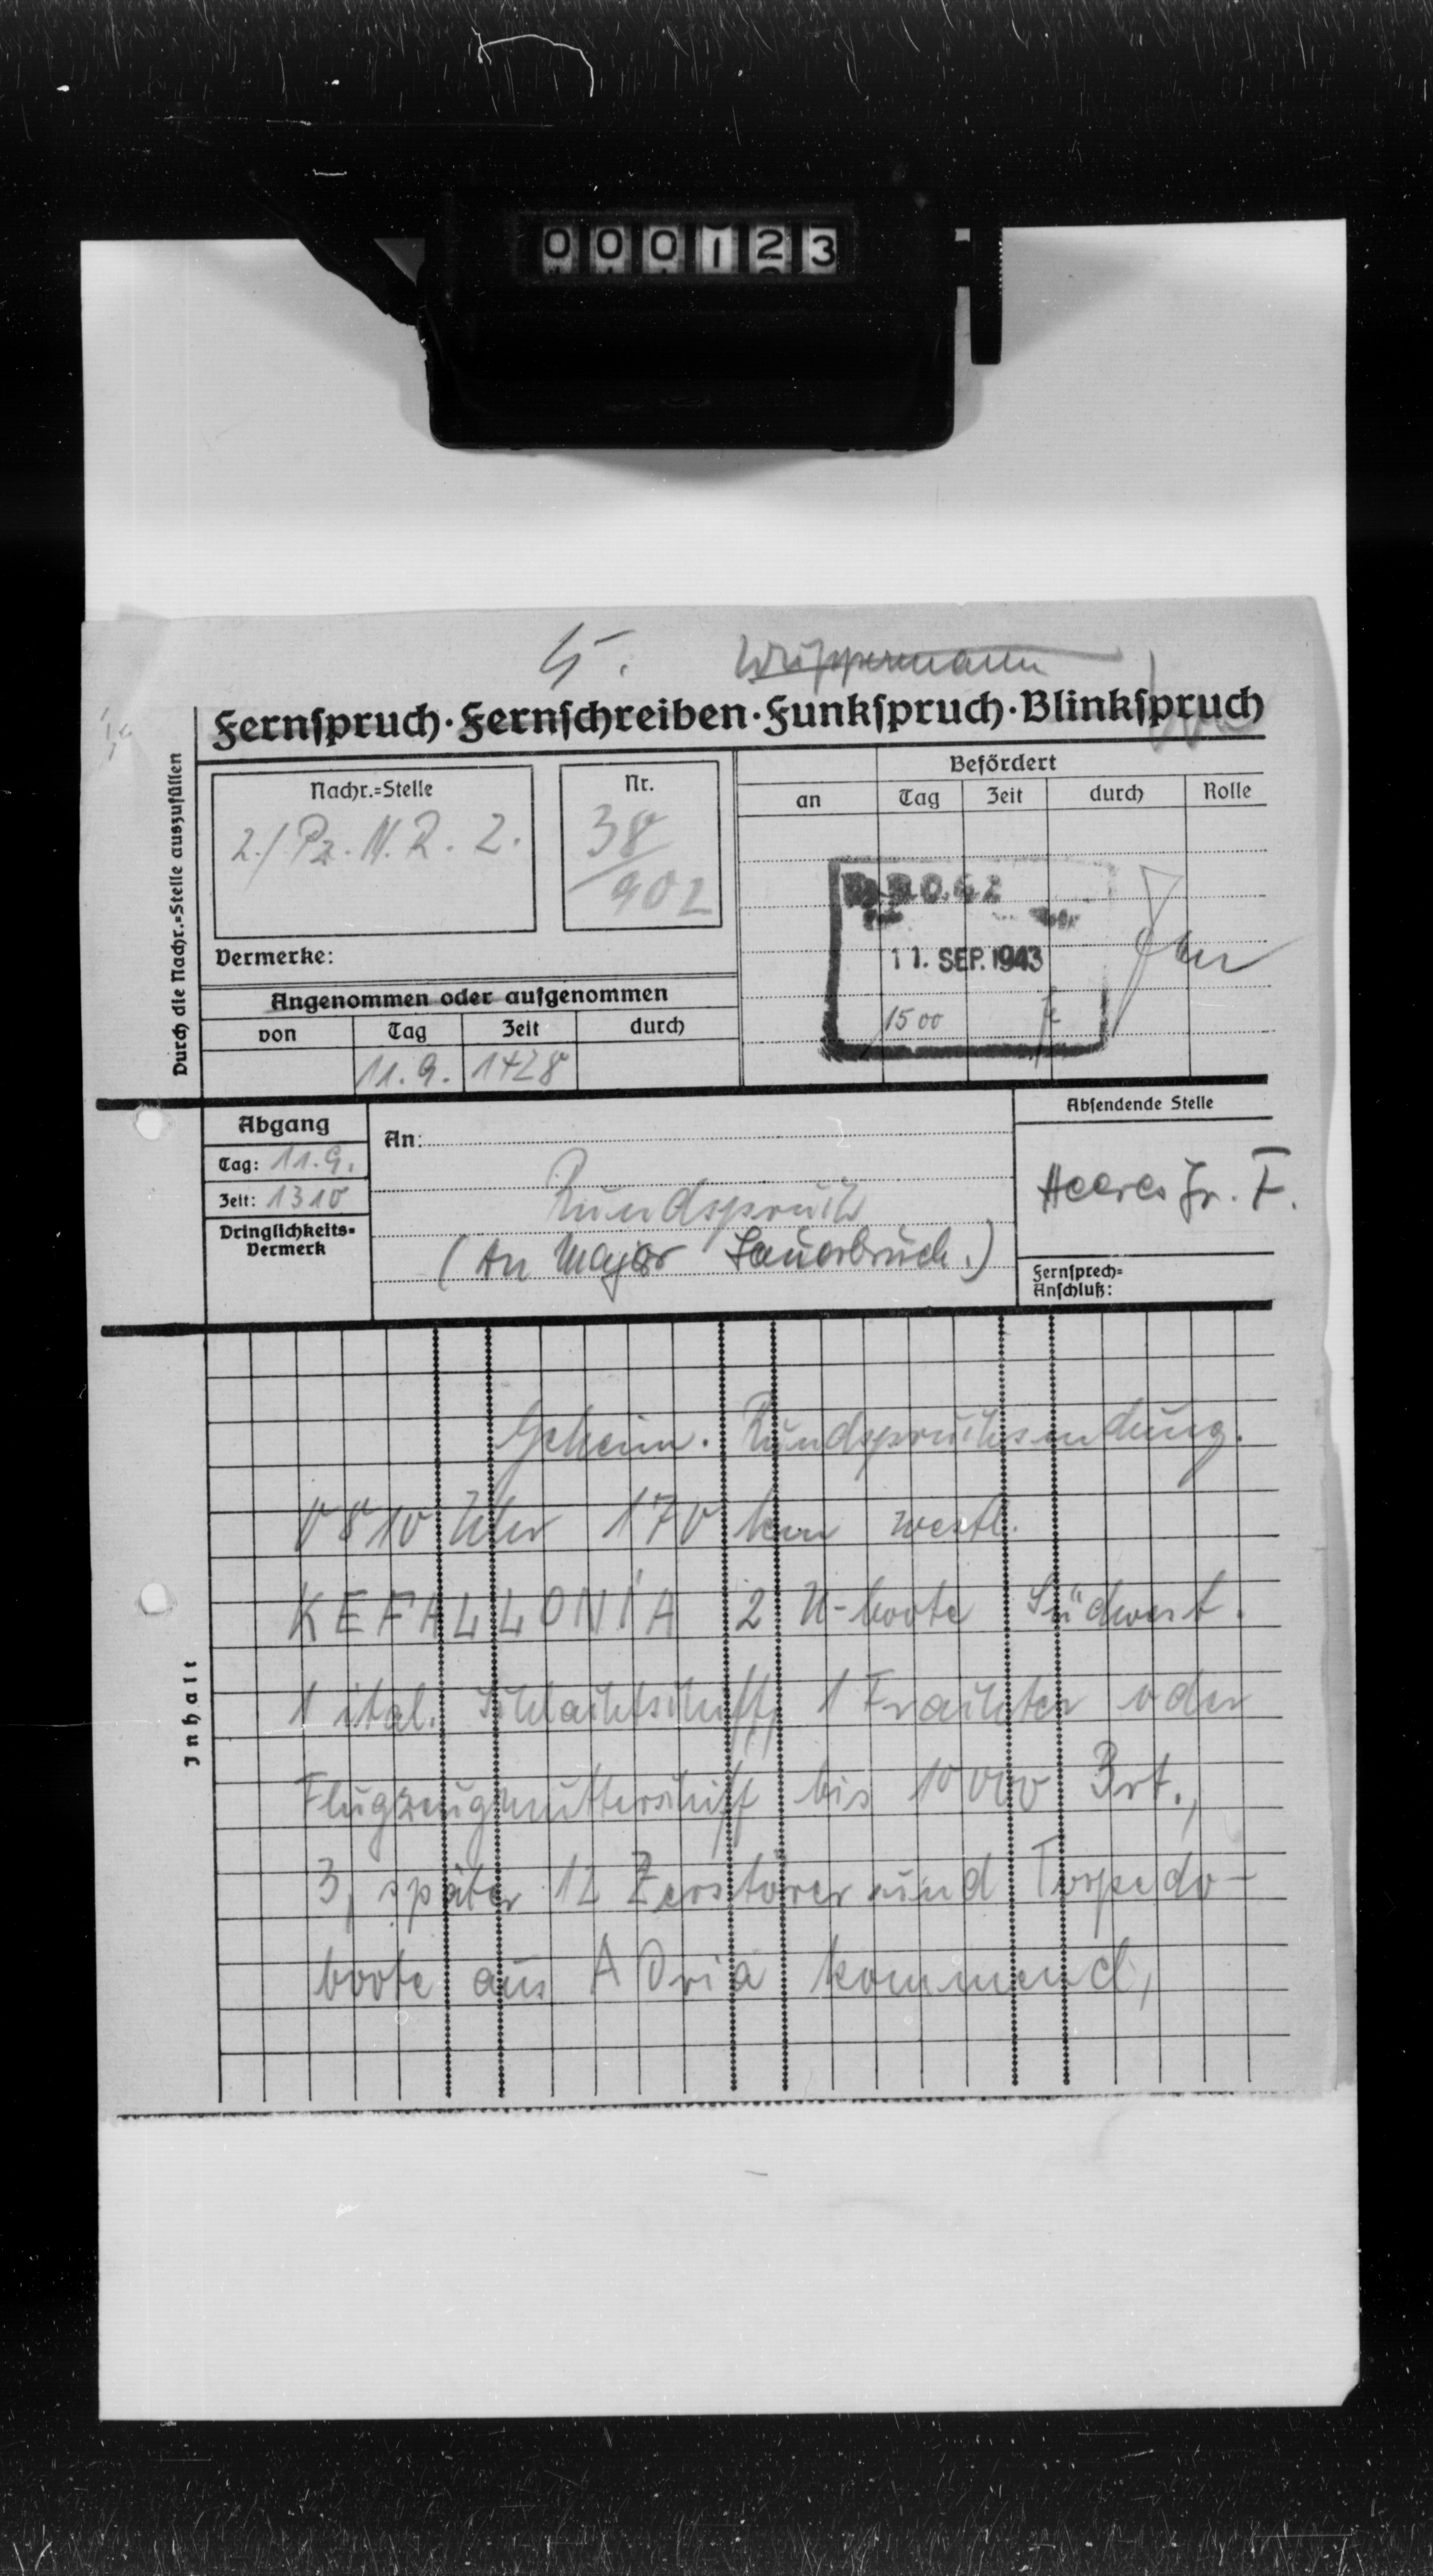 000123
Wüppermann
Fernspruch·Fernschreiben·Funkspruch·Blinkspruch
Durch die Nachr.=Stelle auszufüllen
Nachr.=Stelle
2./Pz. N. R. 2.
Nr.
38/902
Befördert
an Tag Zeit durch Rolle
Vermerke:
11. SEP. 1943
15 00
Angenommen oder aufgenommen
von Tag Zeit durch
11. 9. 1428
Abgang
Tag: 11. 9.
Zeit: 1310
Dringlichkeits=
Vermerk
An:
Rundspruch
(An Major Sauerbruch.)
Absendende Stelle
Heeres Gr. F.
Fernsprech=
Anschluß:
Inhalt
Geheim. Rundspruchsendung.
0810 Uhr 170 km westl.
KEFALLONIA 2 U-boote Südwest.
1 ital. Schlachtschiff, 1 Frachter oder
Flugzeugmutterschiff bis 10000 Brt.,
3, später 12 Zerstörer und Torpedo-
boote aus Adria kommend,